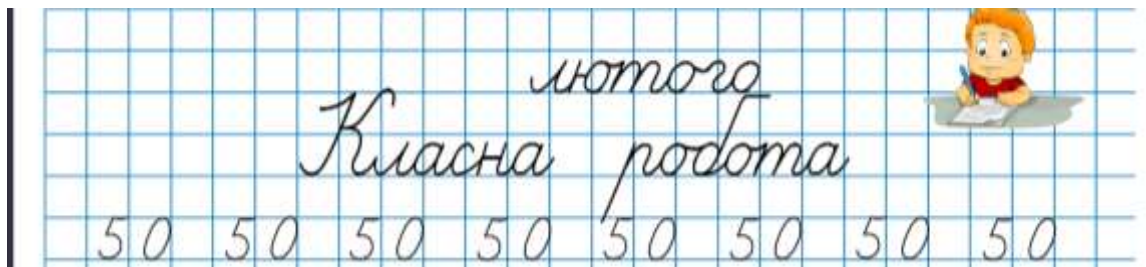 лютого
Класна робота
50 50 50 50 50 50 50 50